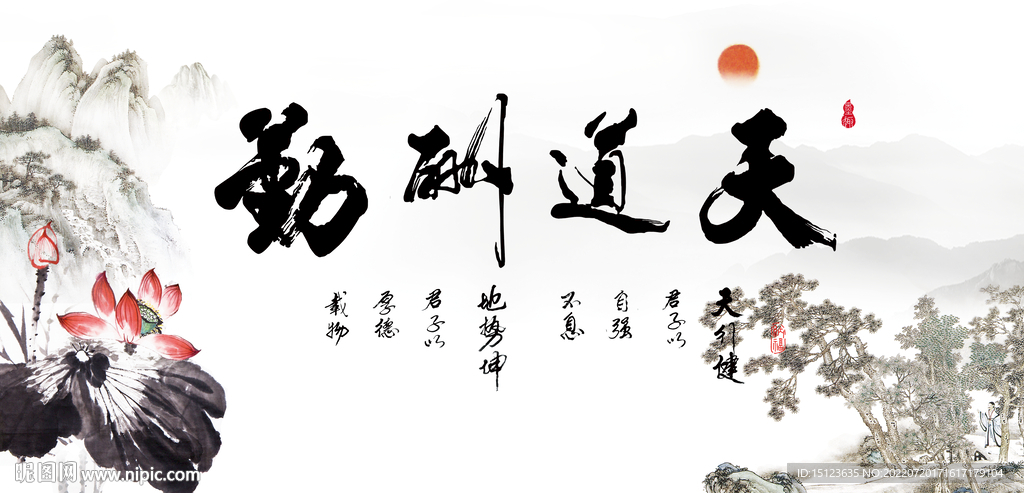 天道酬勤
天行健
君子以
自强
不息
地势坤
君子以
厚德
载物
昵图网 www.nipic.com
ID:15123635 NO:20220720171617179104